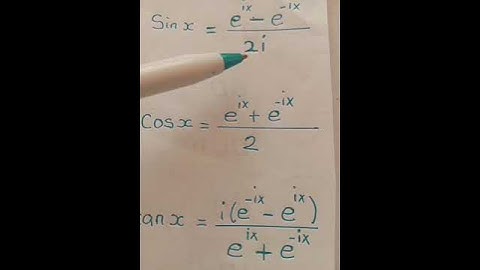 Sin x = (e^ix - e^-ix) / 2i
Cos x = (e^ix + e^-ix) / 2
an x = i(e^-ix - e^ix) / (e^ix + e^-ix)